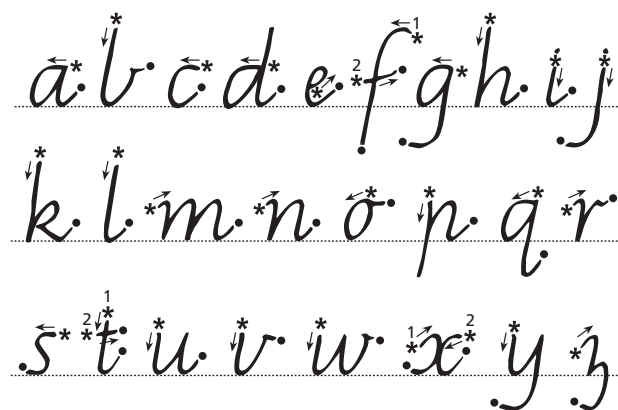 a b c d e 2 f 1 g h i j
k l m n o p q r
s 2 1 t u v w 1 x 2 y z